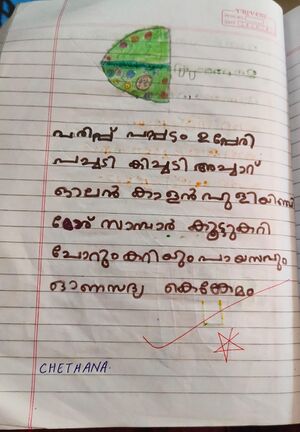 TRIVENI
പരിപ്പ് പപ്പടം ഉപ്പേരി
പച്ചടി കിച്ചടി അച്ചാറ്
ഓലൻ കാളൻ പുളിയിഞ്ചി
സാമ്പാർ കൂട്ടുകറി
ചോറും കറിയും പായസവും
ഓണസദ്യ കെങ്കേമം
CHETHANA